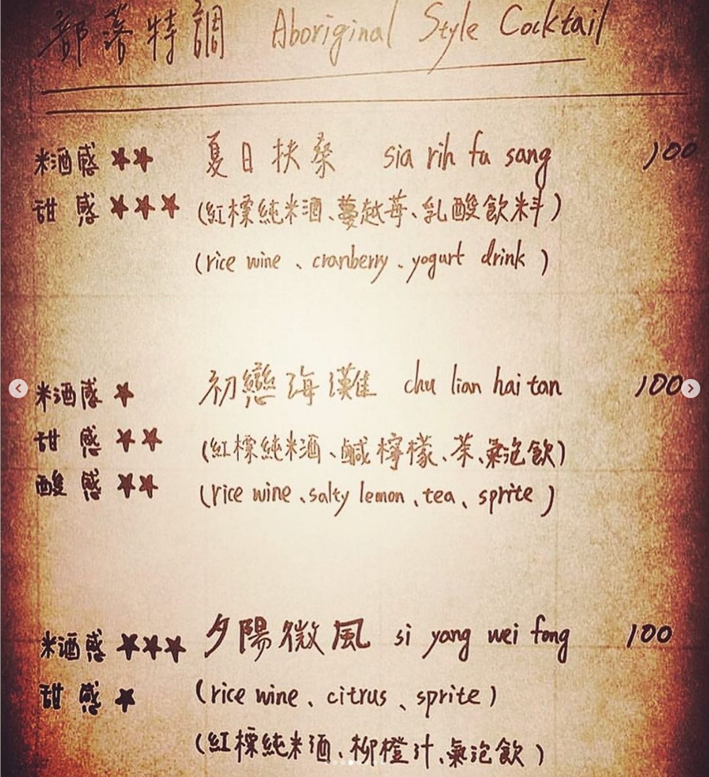 部落特調 Aboriginal Style Cocktail
米酒感 ★★ 夏日扶桑 sia rih fu sang 100
甜 感 ★★★ (紅標純米酒、蔓越莓、乳酸飲料)
(rice wine、cranberry、yogurt drink)
米酒感 ★ 初戀海灘 chu lian hai tan 100
甜 感 ★★ (紅標純米酒、鹹檸檬、茶、氣泡飲)
酸 感 ★★ (rice wine、salty lemon、tea、sprite)
米酒感 ★★★ 夕陽微風 si yang wei fong 100
甜 感 ★ (rice wine、citrus、sprite)
(紅標純米酒、柳橙汁、氣泡飲)